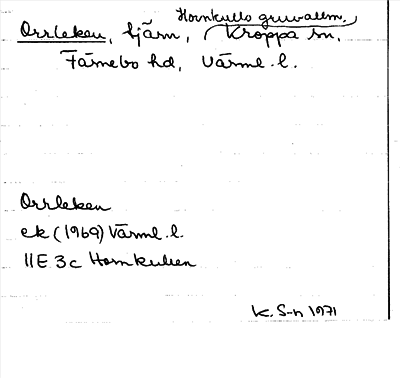 Hornkulls gruvallm.,
Orrleken, tjärn, Kroppa sn,
Färnebo hd, Värml. l.
Orrleken
ek (1969) Värml. l.
11E 3c Hornkullen
K. S-n 1971